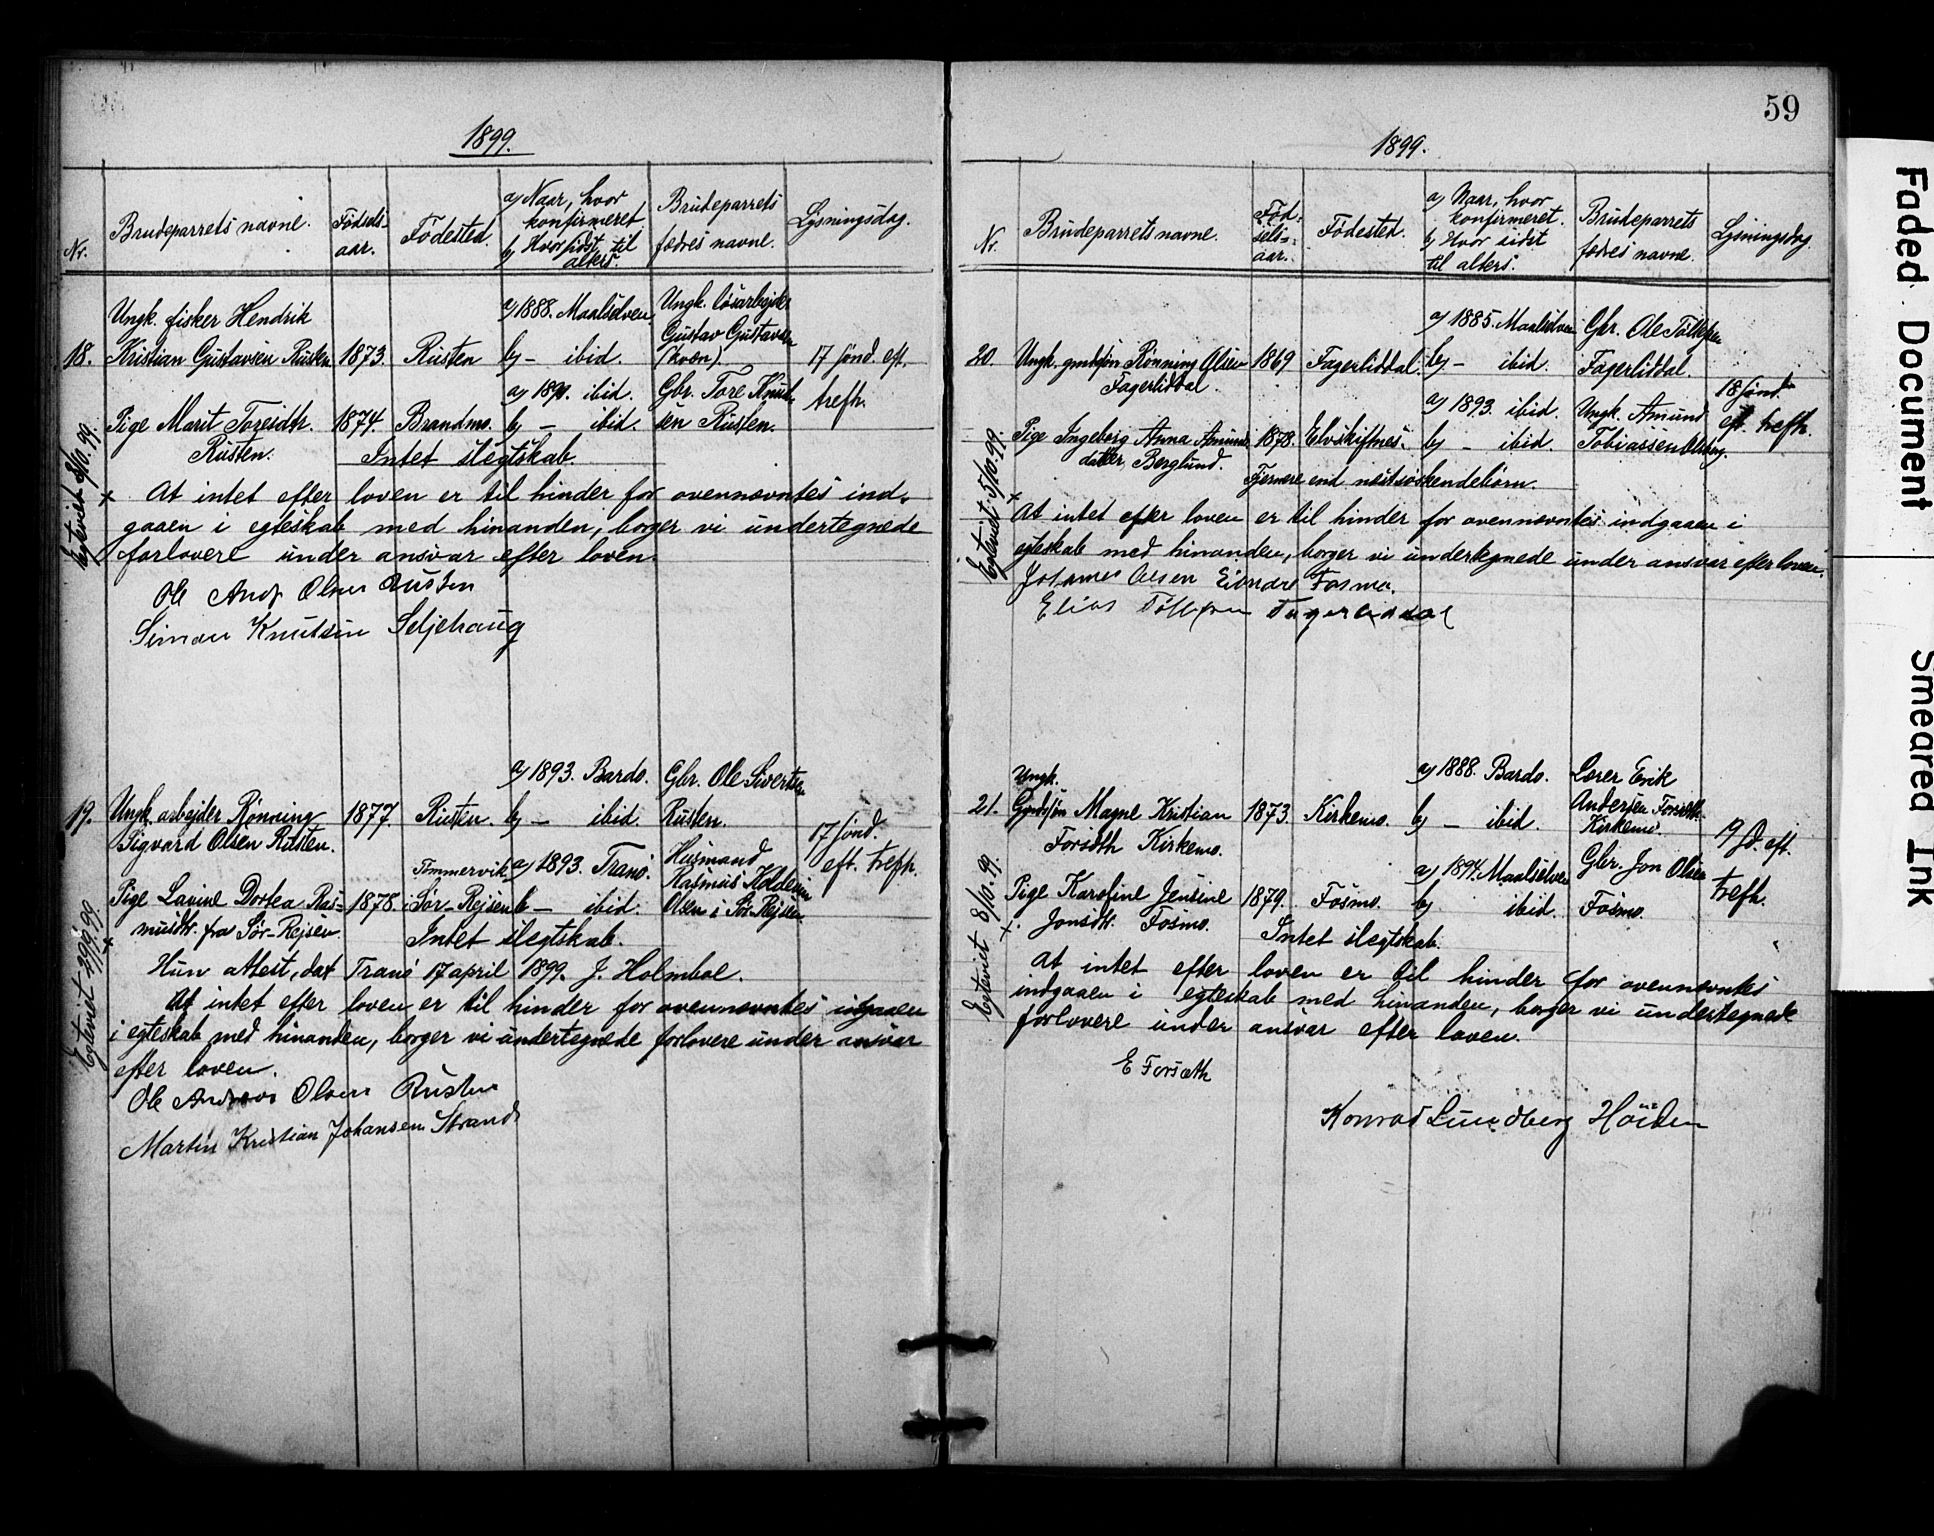 59
1899.
Nr.
Brudeparrets navne.
Fødsels-
aar.
Fødested.
a) Naar, hvor
konfirmeret
b) Hvor sidst til
alters.
Brudeparrets
fædres navne.
Lysningsdag.
Ungk. fisker Hendrik
a) 1888. Maalselven
Ungk. løsarbejder
Gustav Gustavsen
18. Kristian Gustavsen Rusten 1873. Rusten b) - ibid. (kvæn). 17 sønd. eft.
trefh.
a) 1891. ibid. Gbr. Tore Knud-
Pige Marit Toresdtr. 1874. Brandmo. b) - ibid. sen Rusten.
Rusten. Intet slegtskab.
Egteviet 8/10. 99.
+ At intet efter loven er til hinder for ovennævntes ind-
gaaen i egteskab med hinanden, borger vi undertegnede
forlovere under ansvar efter loven.
Ole Andr Olsen Rusten
Simon Knutsen Seljehaug
a) 1893. Bardo. Gbr. Ole Sivertsen
19. Ungk. arbejder Rønning 1877. Rusten. b) - ibid. Rusten. 17 sønd.
Sigvard Olsen Rusten. eft. trefh.
Tømmervik a) 1893. Tranø. Husmand
Rasmus Koldevin
Pige Lavine Dortea Ras- 1878. i Sør-Rejsen b - ibid. Olsen i Sør-Rejsen
musdtr. fra Sør-Rejsen. Intet slegtskab.
Egteviet 29/9. 99.
+
Hun attest, dat Tranø 17 april 1899. J. Holmboe.
At intet efter loven er til hinder for ovennævntes indgaaen
i egteskab med hinanden, borger vi undertegnede forlovere under ansvar
efter loven.
Ole Andreas Olsen Rusten
Martin Kristian Johansen Strand
1899.
Nr.
Brudeparrets navne.
Fød-
sels-
aar.
Fødested.
a) Naar, hvor
konfirmeret.
b) Hvor sidst
til alters.
Brudeparrets
fædres navne.
Lysningsdag.
a) 1885. Maalselven Gbr. Ole Tollefsen
20. Ungk. gmdsøn Rønning Olsen 1869 Fagerliddal. b) - ibid. Fagerliddal.
Fagerliddal. 18 sønd.
eft. trefh.
a) 1893. ibid. Ungk. Amund
Pige Ingeborg Anna Amunds- 1878. Elvskiftnes. b) - ibid. Tobiassen
datter Berglund. Fjernere end næstsøskendebørn.
Egteviet 5/10. 99.
+
At intet efter loven er til hinder for ovennævntes indgaaen i
egteskab med hinanden, borger vi undertegnede under ansvar efter loven.
Johannes Olsen Eidnær Fosmo.
Elias Tollefsen Fagerliddal
Ungk. a) 1888. Bardo. Lærer Erik
21. Gmdsøn Magne Kristian 1873. Kirkemo. b) - ibid. Andersen Forseth
Forsdth Kirkemo. Kirkemo
19 sd. eft.
trefh.
a) 1894. Maalselven Gbr. Jon Olsen
Pige Karoline Jensine 1879. Fosmo. b) ibid. Fosmo.
Jonsdtr. Fosmo. Intet slegtskab.
Egteviet 8/10. 99.
+
At intet efter loven er til hinder for ovennævntes
indgaaen i egteskab med hinanden, borger vi undertegnede
forlovere under ansvar efter loven.
E Forsæth
Konrad Lundberg Høiden
Faded Document
Smeared Ink